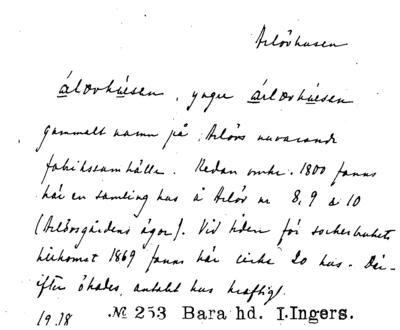 Arlövhusen
álǝvhúsen, yngre árlǝvhúsen
gammalt namn på Arlövs nuvarande
fabrikssamhälle. Redan omkr. 1800 fanns
här en samling hus å Arlöv nr 8, 9 o 10
(Arlövsgårdens ägor). Vid tiden för sockerbrukets
tillkomst 1869 fanns här cirka 20 hus. Där-
efter ökades antalet hus kraftigt.
19 18 № 253 Bara hd. I.Ingers.